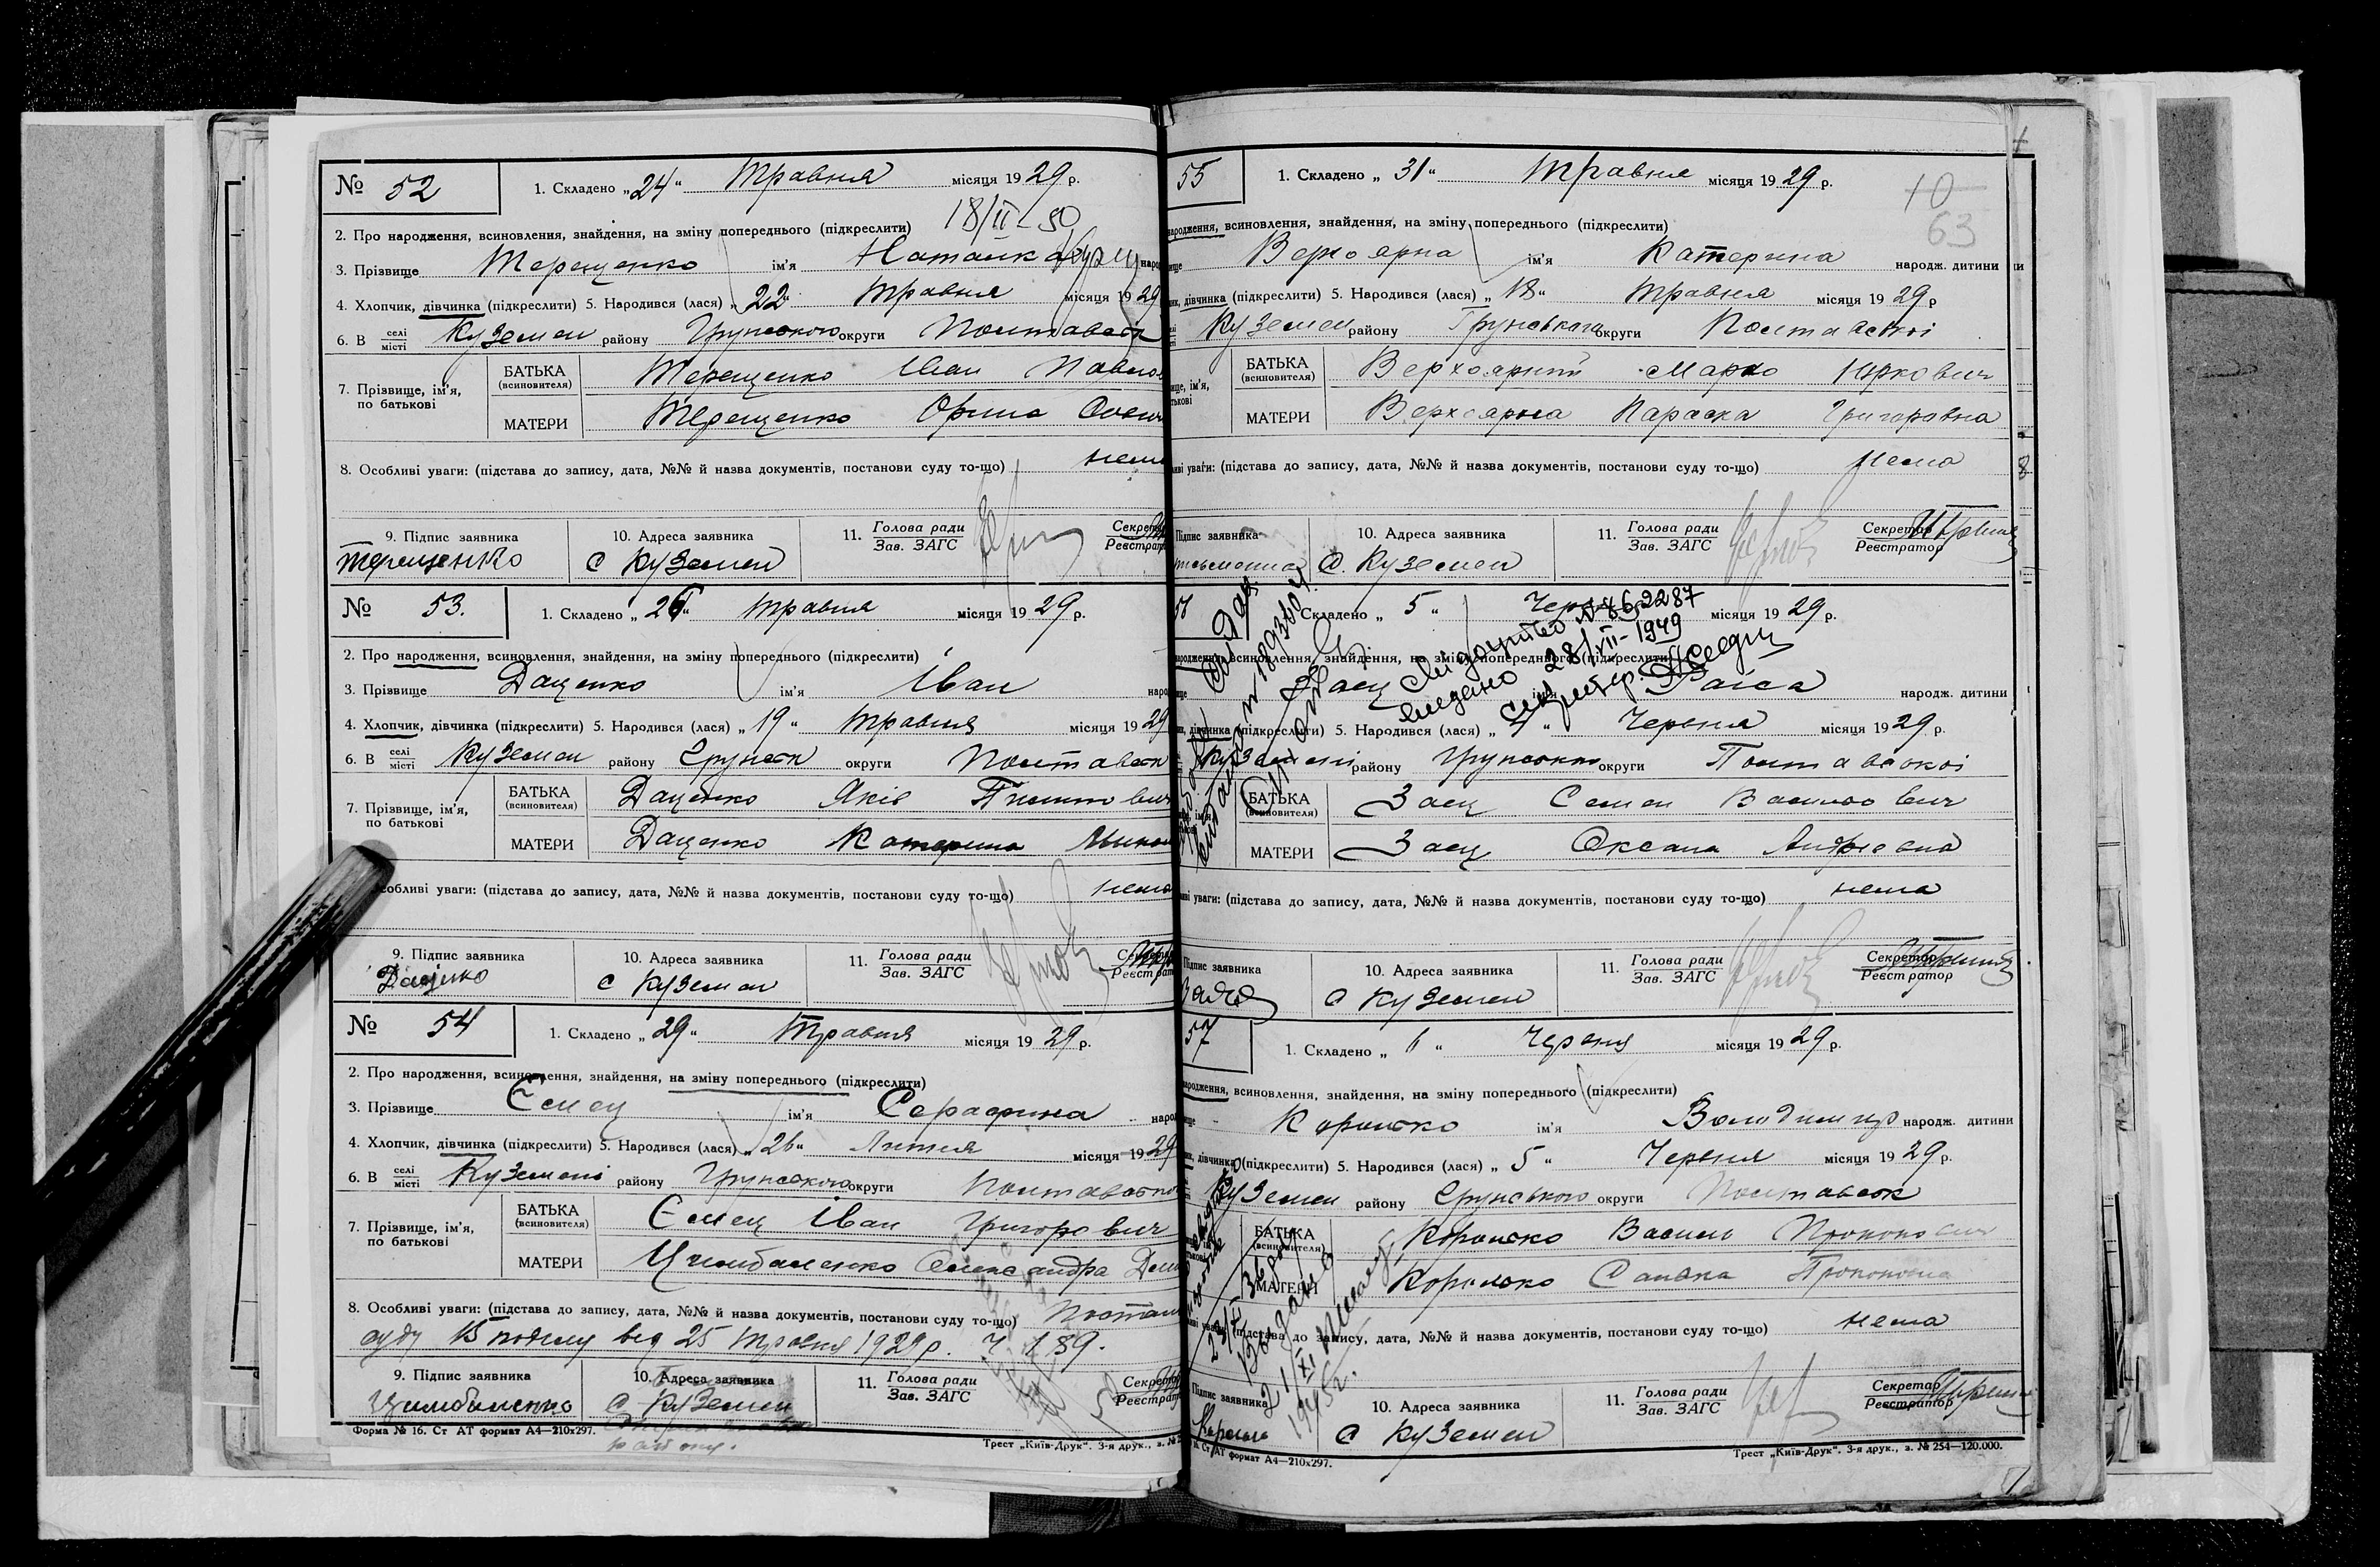 № 52
1. Складено „24“ Травня місяця 1929 р.
18/II-50
2. Про народження, всиновлення, знайдення, на зміну попереднього (підкреслити)
3. Прізвище Терещенко ім'я Наталка
4. Хлопчик, дівчинка (підкреслити) 5. Народився (лася) „22“ Травня місяця 1929
6. В селі місті Куземен району Грунського округи Полтавськ
7. Прізвище, ім'я, по батькові
БАТЬКА (всиновителя) Терещенко Іван Павло
МАТЕРИ Терещенко Орина
8. Особливі уваги: (підстава до запису, дата, №№ й назва документів, постанови суду то-що) нема
9. Підпис заявника
Терещенко
10. Адреса заявника
с Куземен
11. Голова ради
Зав. ЗАГС
Секретар
Реєстрат
№ 53.
1. Складено „26“ травня місяця 1929 р.
2. Про народження, всиновлення, знайдення, на зміну попереднього (підкреслити)
3. Прізвище Даценко ім'я Іван
4. Хлопчик, дівчинка (підкреслити) 5. Народився (лася) „19“ травня місяця 1929
6. В селі місті Куземен району Грунськ округи Полтавськ
7. Прізвище, ім'я, по батькові
БАТЬКА (всиновителя) Даценко Яків Пилипович
МАТЕРИ Даценко Катерина
особливі уваги: (підстава до запису, дата, №№ й назва документів, постанови суду то-що) нема
9. Підпис заявника
Даценко
10. Адреса заявника
с Куземен
11. Голова ради
Зав. ЗАГС
Секретар
Реєстрат
№ 54
1. Складено „29“ Травня місяця 1929 р.
2. Про народження, всиновлення, знайдення, на зміну попереднього (підкреслити)
3. Прізвище Ємец ім'я Серафима
4. Хлопчик, дівчинка (підкреслити) 5. Народився (лася) „26“ Лютня місяця 1929
6. В селі місті Куземені району Грунського округи Полтавсько
7. Прізвище, ім'я, по батькові
БАТЬКА (всиновителя) Ємец Іван Григорович
МАТЕРИ Цимбаленко Олександра
8. Особливі уваги: (підстава до запису, дата, №№ й назва документів, постанови суду то-що) Постан
суду 15 поділу від 25 травня 1929 р. Ч 189.
9. Підпис заявника
Цимбаленко
10. Адреса заявника
с Куземен
11. Голова ради
Зав. ЗАГС
Секретар
Реєстрат
Форма № 16. Ст АТ формат А4—210х297.
Трест „Київ-Друк“. 3-я друк., з. №
55
1. Складено „31“ Травня місяця 1929 р.
10
63
народження, всиновлення, знайдення, на зміну попереднього (підкреслити)
Верхоярна ім'я Катерина народж. дитини
дівчинка (підкреслити) 5. Народився (лася) „18“ Травня місяця 1929 р
Куземен району Грунського округи Полтавскоі
БАТЬКА (всиновителя) Верхоярний Марко Юркович
МАТЕРИ Верхоярна Параска Григоровна
уваги: (підстава до запису, дата, №№ й назва документів, постанови суду то-що) нема
Підпис заявника
10. Адреса заявника
с. Куземен
11. Голова ради
Зав. ЗАГС
Секретар
Реєстратор
56
Складено „5“ Червня місяця 1929 р.
№ 862287
28/III-1949
народження, всиновлення, знайдення, на зміну попереднього (підкреслити)
Заєц Раіса народж. дитини
дівчинка (підкреслити) 5. Народився (лася) „4“ Червня місяця 1929 р.
Куземені району Грунського округи Полтавскоі
БАТЬКА (всиновителя) Заєц Семен Васильович
МАТЕРИ Заєц Оксана Андрієвна
уваги: (підстава до запису, дата, №№ й назва документів, постанови суду то-що) нема
Підпис заявника
10. Адреса заявника
с Куземен
11. Голова ради
Зав. ЗАГС
Секретар
Реєстратор
57
1. Складено „6“ Червня місяця 1929 р.
народження, всиновлення, знайдення, на зміну попереднього (підкреслити)
Королько ім'я Володимир народж. дитини
дівчинка (підкреслити) 5. Народився (лася) „5“ Червня місяця 1929 р.
Куземен району Грунського округи Полтавськ
БАТЬКА (всиновителя) Королько Василь Прокопович
МАТЕРИ Королько Санька
уваги: (підстава до запису, дата, №№ й назва документів, постанови суду то-що) нема
21/XI
1945 г.
Підпис заявника
10. Адреса заявника
с Куземен
11. Голова ради
Зав. ЗАГС
Секретар
Реєстратор
Ст АТ формат А4—210х297.
Трест „Київ-Друк“. 3-я друк., з. № 254—120.000.